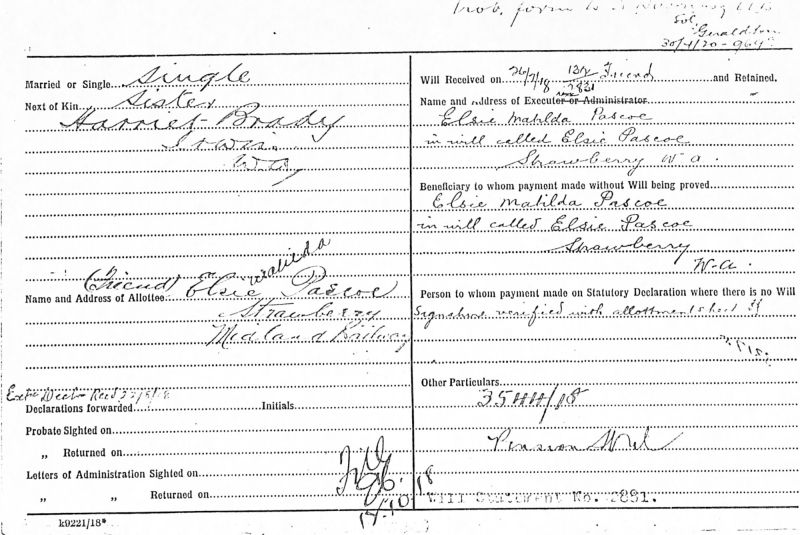 Prob. form to
Sol.
Geraldton
30/4/20 - 964
Married or Single Single
Next of Kin Sister
Harriet Brady
Irwin
W.A.
(Friend) Matilda
Name and Address of Allottee Elsie Pascoe
Strawberry
Midland Railway
Declarations forwarded Initials
Probate Sighted on
„ Returned on
Letters of Administration Sighted on
„ „ Returned on
17/10/18
k9221/18*
Will Received on 26/7/18 Friend and Retained.
2831
Name and Address of Executor or Administrator
Elsie Matilda Pascoe
in will called Elsie Pascoe
Strawberry W.A.
Beneficiary to whom payment made without Will being proved
Elsie Matilda Pascoe
in will called Elsie Pascoe
Strawberry
W.A.
Person to whom payment made on Statutory Declaration where there is no Will
Signature verified with allotment sheet
Other Particulars
35444/18
Pension
Will Statement No. 2831.